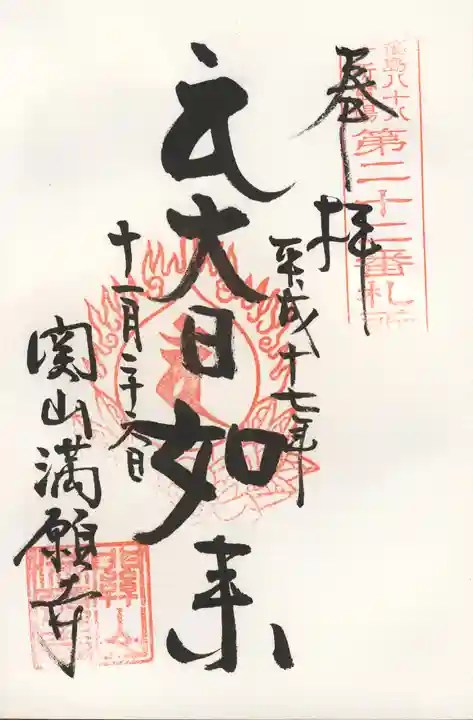 島八十八
第二十二番札所
奉拝
平成十七年
大日如来
十一月二十六日
関山満願寺